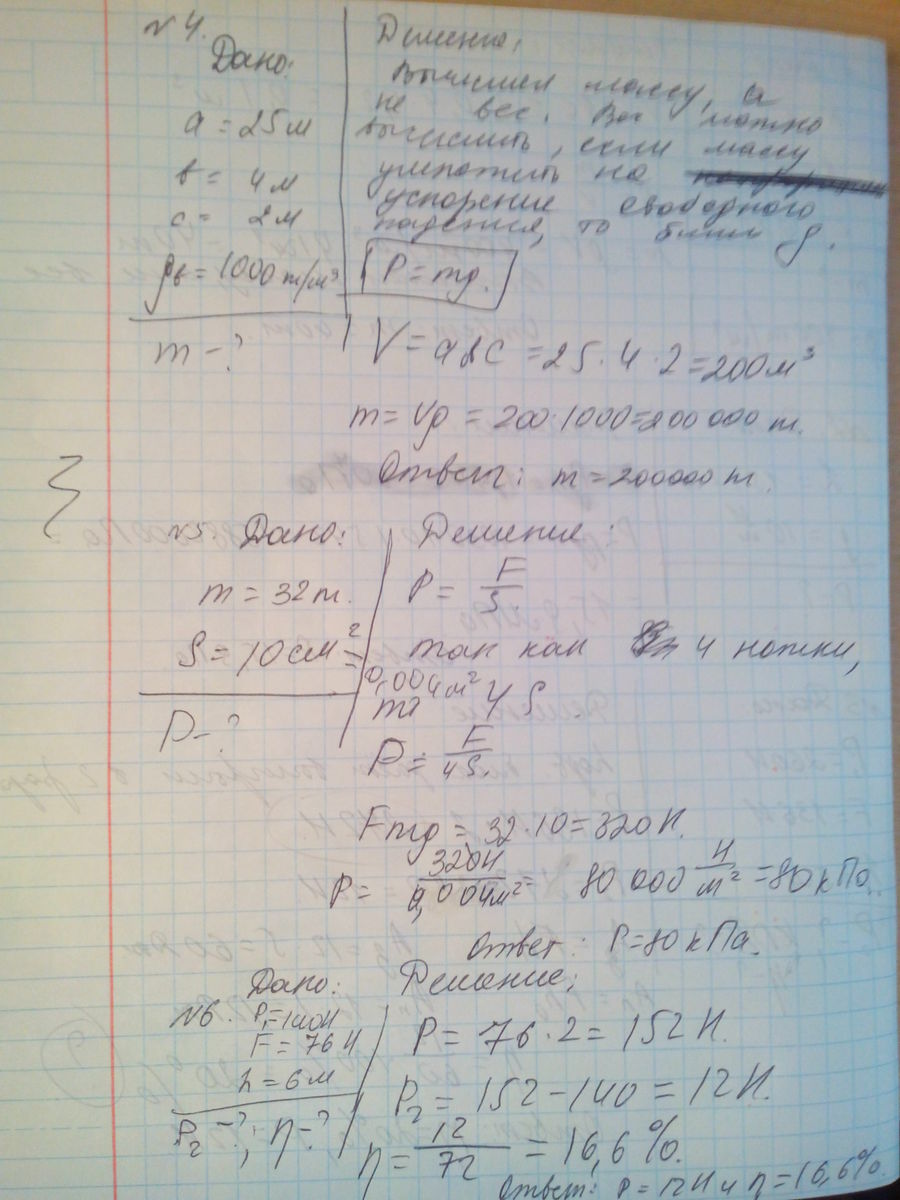 №4.
Дано:
a = 25 м
в = 4 м
c = 2 м
ρв = 1000 т/м³
m - ?
Решение:
Вычислил массу, а
не вес. Вес можно
вычислить, если массу
умножить на
ускорение свободного
падения, то бишь g.
P = mg.
V = aвc = 25 · 4 · 2 = 200 м³
m = Vρ = 200 · 1000 = 200 000 т.
Ответ: m = 200000 т.
№5. Дано:
m = 32 т.
S = 10 см² =
0,004 м²
P - ?
Решение:
P = F/S
так как 4 ножки,
то 4 S
P = F/4S.
Fmg = 32 · 10 = 320 Н.
P = 320Н/0,004м² = 80 000 Н/м² = 80 кПа.
Ответ: P = 80 кПа.
№6. Дано:
P₁ = 140Н
F = 76 Н
h = 6 м
P₂ - ?; η - ?
Решение:
P = 76 · 2 = 152 Н.
P₂ = 152 - 140 = 12 Н.
η = 12/72 = 16,6 %.
Ответ: P = 12 Н и η = 16,6%.